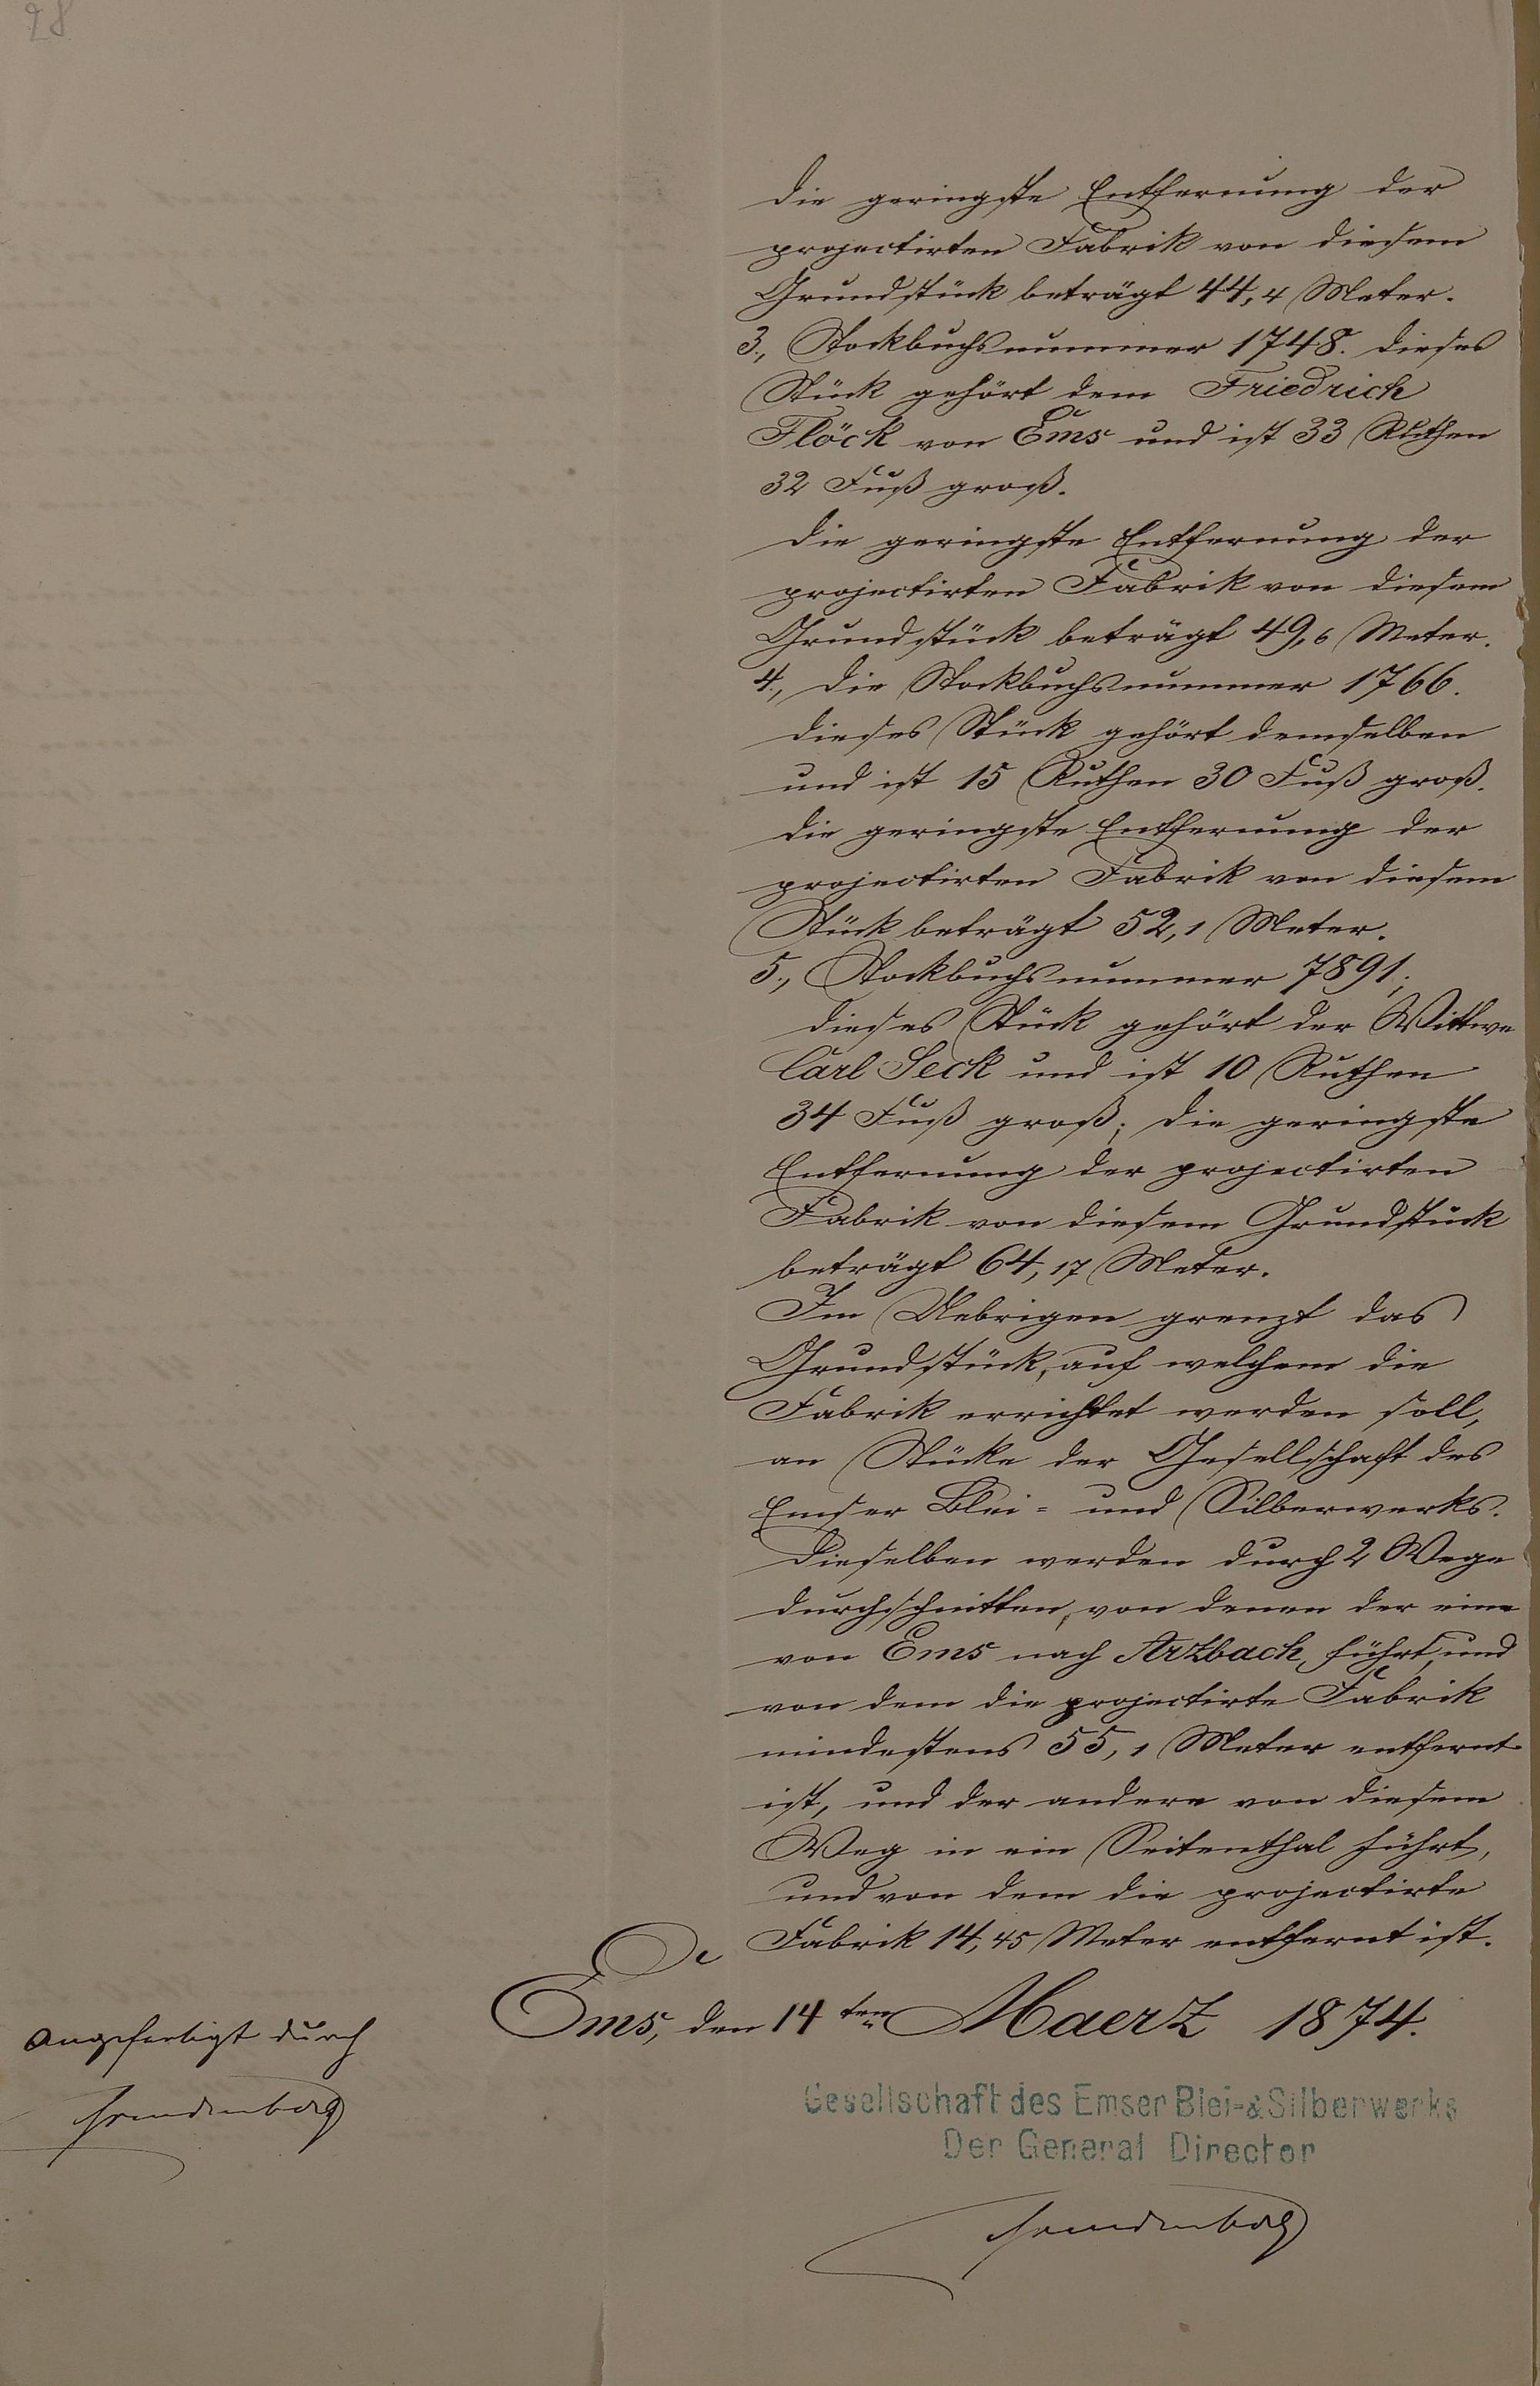 28
die geringste Entfernung der
projectirten Fabrik von diesem
Grundstück beträgt 44,4 Meter.
3., Stockbuchsnummer 1748. dieses
Stück gehört dem Friedrich
Flöck von Ems und ist 33 Ruthen
32 Fuß groß.
die geringste Entfernung der
projectirten Fabrik von diesem
Grundstück beträgt 49,6 Meter.
4., die Stockbuchsnummer 1766.
dieses Stück gehört demselben
und ist 15 Ruthen 30 Fuß groß.
die geringste Entfernung der
projectirten Fabrik von diesem
Stück beträgt 52,1 Meter.
5., Stockbuchsnummer 7891;
dieses Stück gehört der Wittwe
Carl Seck und ist 10 Ruthen
34 Fuß groß; die geringste
Entfernung der projectirten
Fabrik von diesem Grundstück
beträgt 64,17 Meter.
Im Uebrigen grenzt das
Grundstück, auf welchem die
Fabrik errichtet werden soll,
an Stücke der Gesellschaft des
Emser Blei- und Silberwerks.
Dieselben werden durch 2 Wege
durchschnitten, von denen der eine
von Ems nach Arzbach, führt, und
von dem die projectirte Fabrik
mindestens 55,1 Meter entfernt
ist, und der andere von diesem
Weg in ein Seitenthal führt,
und von dem die projectirte
Fabrik 14,45 Meter entfernt ist.
Ems, den 14ten Maerz 1874.
Angefertigt durch
Gesellschaft des Emser Blei-& Silberwerks
Der General Director